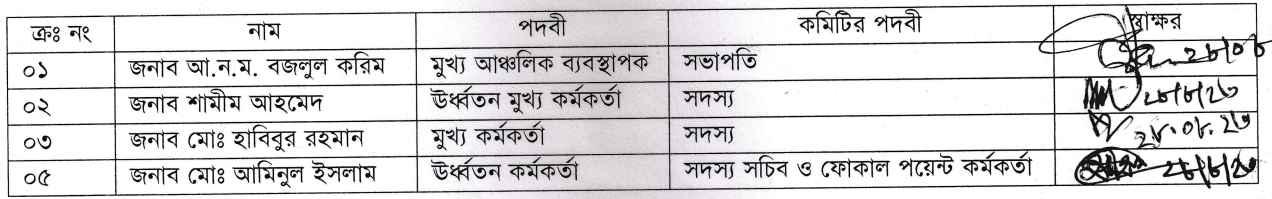 ক্রঃ নং নাম পদবী কমিটির পদবী স্বাক্ষর
০১ জনাব আ.ন.ম. বজলুল করিম মুখ্য আঞ্চলিক ব্যবস্থাপক সভাপতি
০২ জনাব শামীম আহমেদ ঊর্ধ্বতন মুখ্য কর্মকর্তা সদস্য
০৩ জনাব মোঃ হাবিবুর রহমান মুখ্য কর্মকর্তা সদস্য
০৫ জনাব মোঃ আমিনুল ইসলাম ঊর্ধ্বতন কর্মকর্তা সদস্য সচিব ও ফোকাল পয়েন্ট কর্মকর্তা